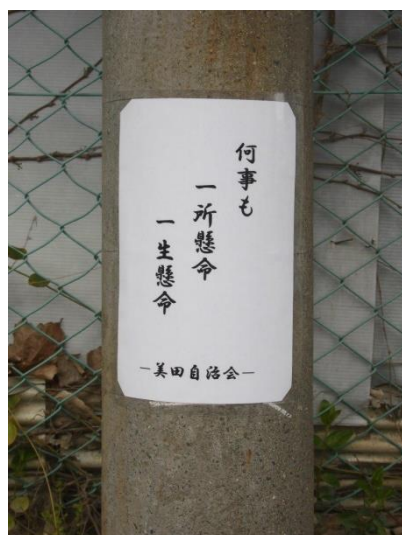 何事も
一所懸命
一生懸命
－美田自治会－